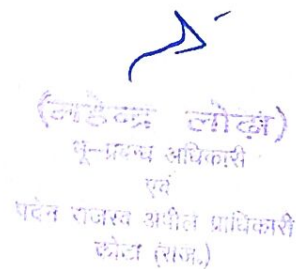 (महेन्द्र लोढ़ा)
भू-प्रबन्ध अधिकारी
एवं
पदेन राजस्व अपील प्राधिकारी
कोटा (राज.)